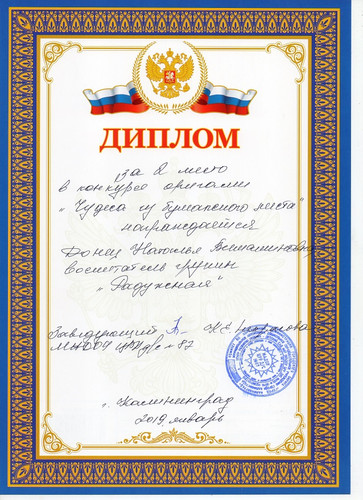 ДИПЛОМ
за 2 место
в конкурсе оригами
"Чудеса из бумажного листа"
награждается
Донец Наталья Вениаминовна
воспитатель группы
"Радужная"
Заведующий
№ 87
г. Калининград
2019, январь